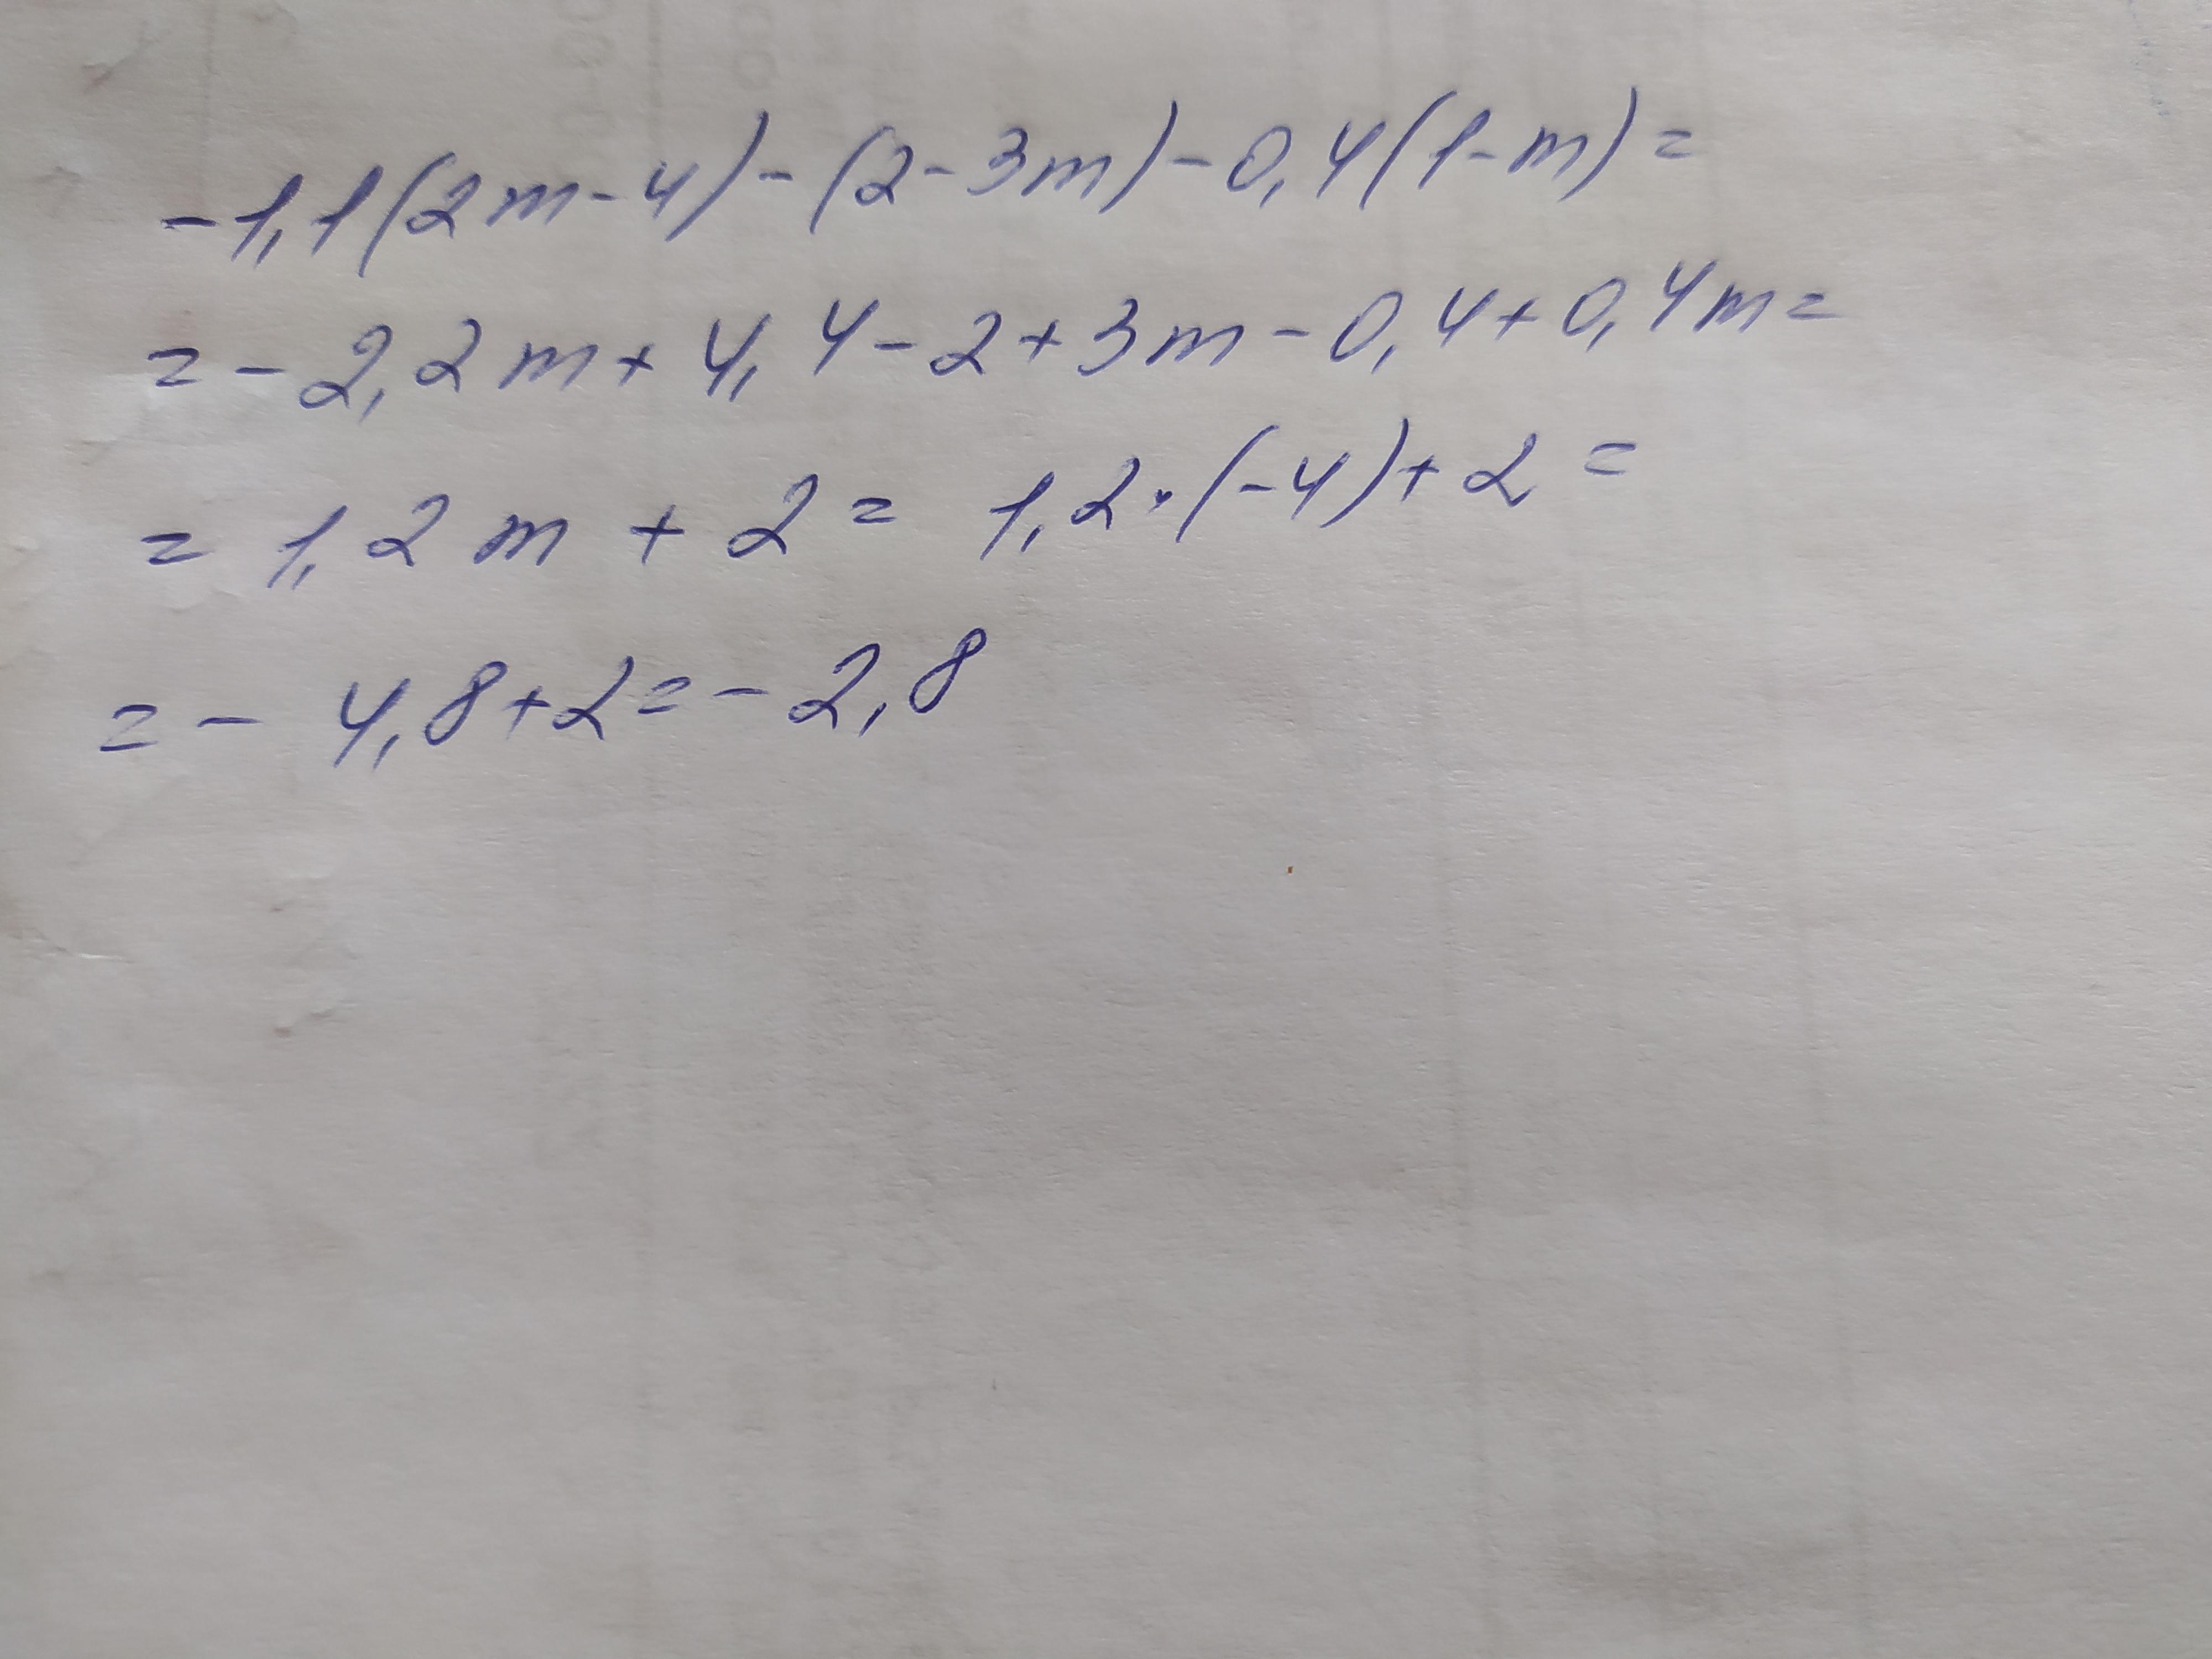 -1,1(2m-4)-(2-3m)-0,4(1-m)=
=-2,2m+4,4-2+3m-0,4+0,4m=
=1,2m+2=1,2·(-4)+2=
=-4,8+2=-2,8